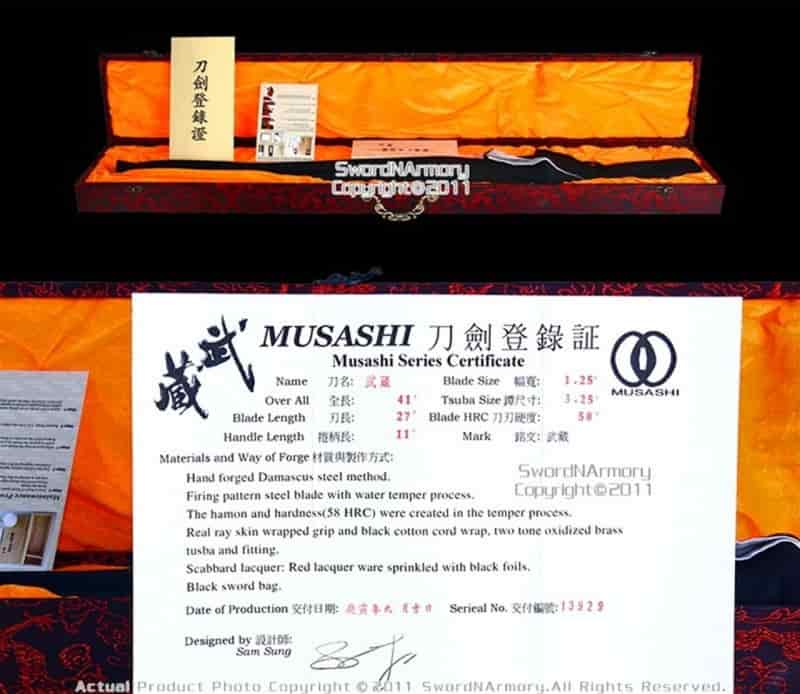 刀劍登錄證
SwordNArmory
Copyright©2011
武蔵
MUSASHI 刀劍登錄証
Musashi Series Certificate
MUSASHI
Name 刀名: 武蔵 Blade Size 幅寬: 1.25"
Over All 全長: 41" Tsuba Size 鐔尺寸: 3.25"
Blade Length 刃長: 27" Blade HRC 刀刃硬度: 58°
Handle Length 捲柄長: 11" Mark 銘文: 武蔵
Materials and Way of Forge 材質與製作方式:
Hand forged Damascus steel method.
SwordNArmory
Copyright©2011
Firing pattern steel blade with water temper process.
The hamon and hardness(58 HRC) were created in the temper process.
Real ray skin wrapped grip and black cotton cord wrap, two tone oxidized brass
tusba and fitting.
Scabbard lacquer: Red lacquer ware sprinkled with black foils.
Black sword bag.
Date of Production 交付日期: 庚寅年九月廿日 Sereical No. 交付編號: 13929
Designed by 設計師:
Sam Sung
Actual Product Photo Copyright © 2011 SwordNArmory.All Rights Reserved.